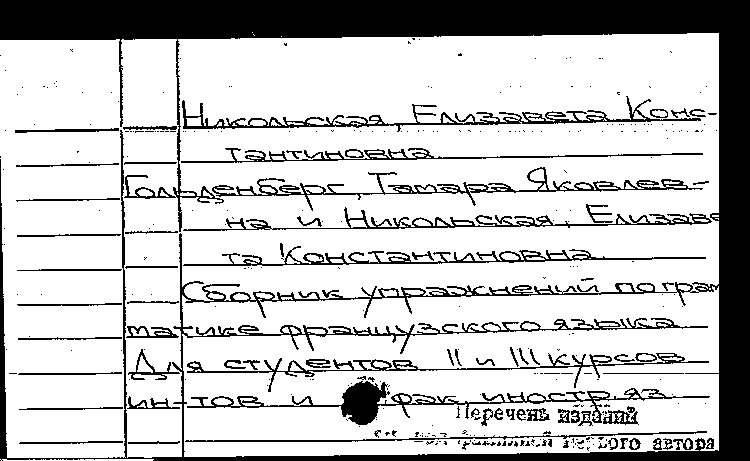 Никольская, Елизавета Конс-
тантиновна
Гольденберг, Тамара Яковлев-
на и Никольская, Елизаве
та Константиновна
Сборник упражнений по грам
матике французского языка
Для студентов II и III курсов
ин-тов и фак. иностр. яз.
Перечень изданий
под фамилией первого автора